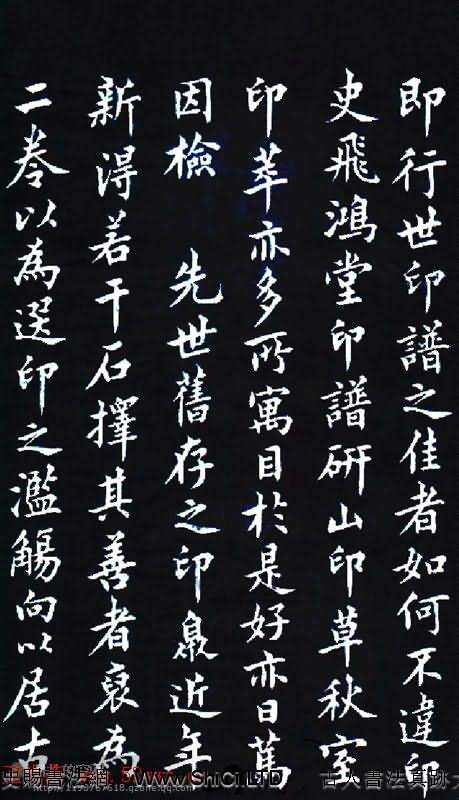 即行世印譜之佳者如何不違印
史飛鴻堂印譜研山印草秋室
印萃亦多所寓目於是好亦日篤
因檢 先世舊存之印泉近年
新得若干石擇其善者裒為
二卷以為選印之濫觴向以居古
www.ShiCi.LTD